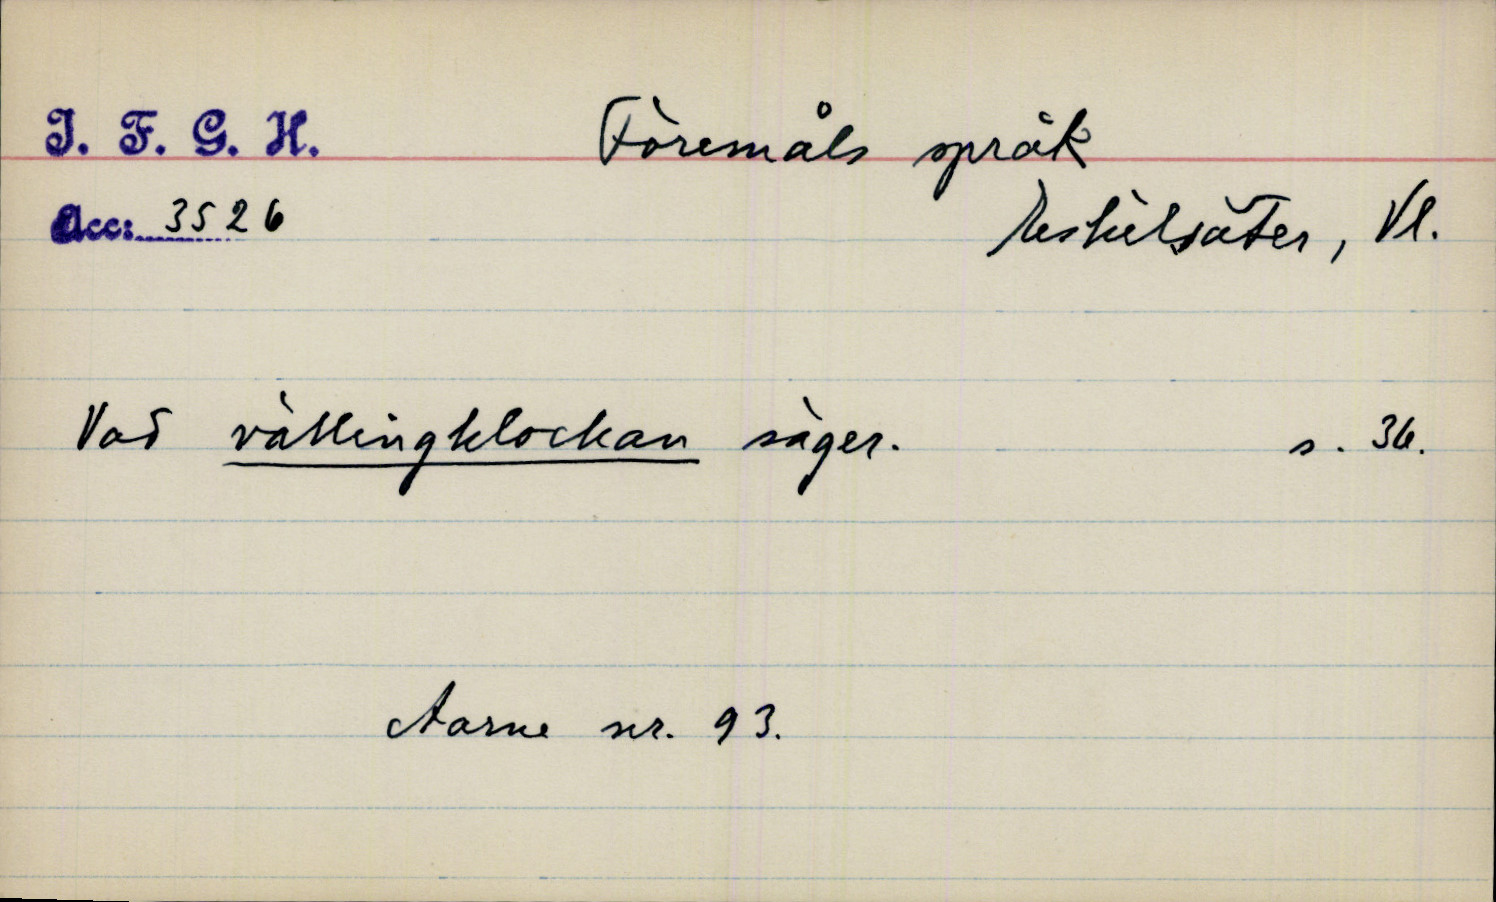 I. F. G. H.
Föremåls språk
Acc: 3526
Eskilsäter, Vl.
Vad vällingklockan säger. s. 36.
Aarne nr. 93.